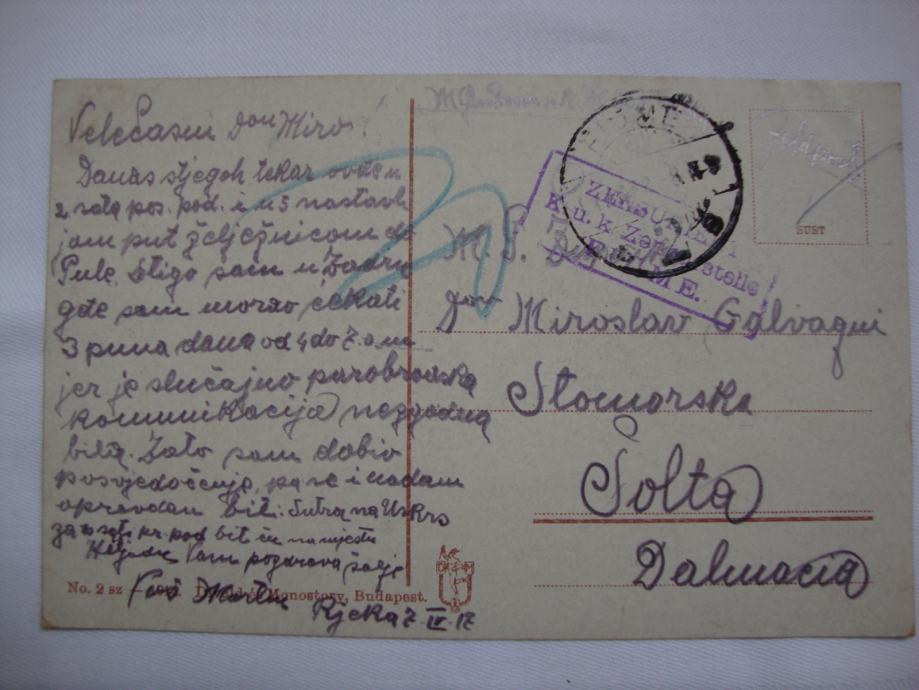 Velečasni Don Miro!
Danas stjegoh tekar ovdje u
2 sata pos. pod. i u 5 nastavl
jam put željeznicom do
Pule. Stigo sam u Zadru
gdje sam morao čekati
3 puna dana od 4 do 7. o. m.
jer je slučajno parobrodska
komunikacija nezgodna
bila. Zato sam dobio
posvjedočenje, pa se i nadam
opravdan biti. Sutra na Uskrs
za 10 sati pr. pod. bit ću na mjestu
Vam pozdrava šalje
Vaš Martin
Rjeka 7 IV 17
No. 2 sz Monostory, Budapest.
FIUME
ZENSU
K. u. k. Zen stelle
FIUME.
Feldpost
SUST
M. P.
Don Miroslav Galvagni
Stomorska
Šolta
Dalmacia